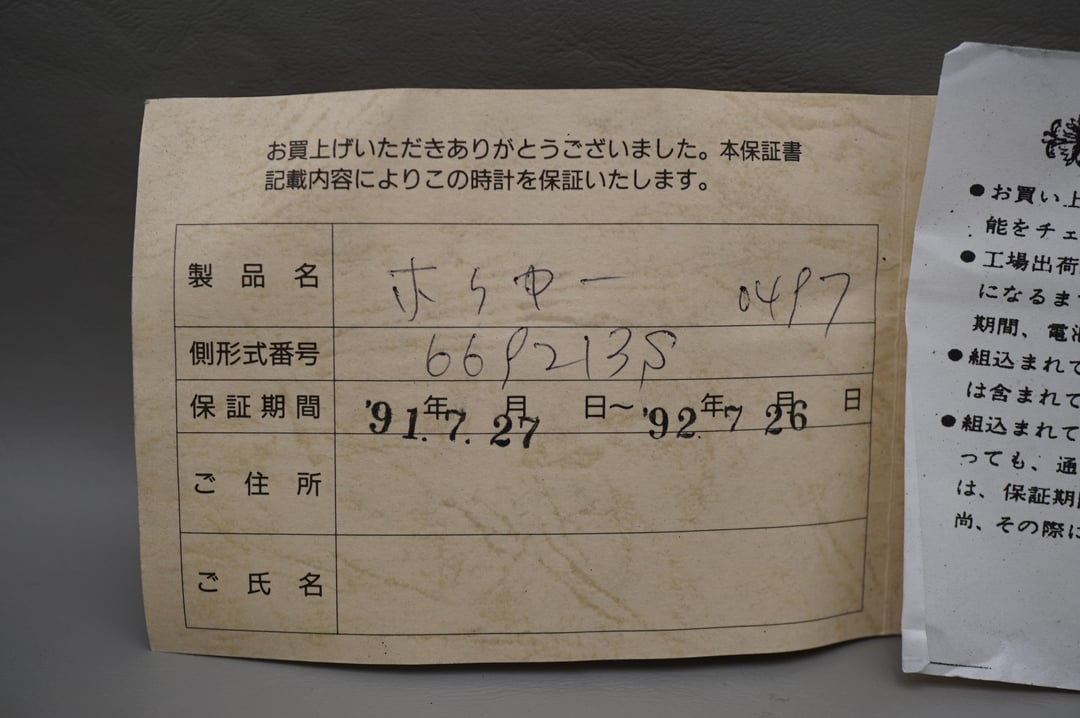 お買上げいただきありがとうございました。本保証書
記載内容によりこの時計を保証いたします。
製品名 0497
側形式番号 669213S
保証期間 '91.年7.月27日〜'92.年7月26日
ご住所
ご氏名
●お買い上
能をチェ
●工場出荷
になるま
期間、電池
●組込まれて
は含まれて
●組込まれて
っても、通
は、保証期
尚、その際に